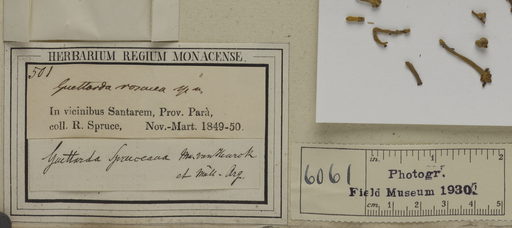 HERBARIUM REGIUM MONACENSE.
501
Guettarda
In vicinibus Santarem, Prov. Parà,
coll. R. Spruce, Nov.-Mart. 1849-50.
Guettarda Spruceana
et Müll-Arg.
6061
in. 1 2
Photogr.
Field Museum 1930
cm. 1 2 3 4 5